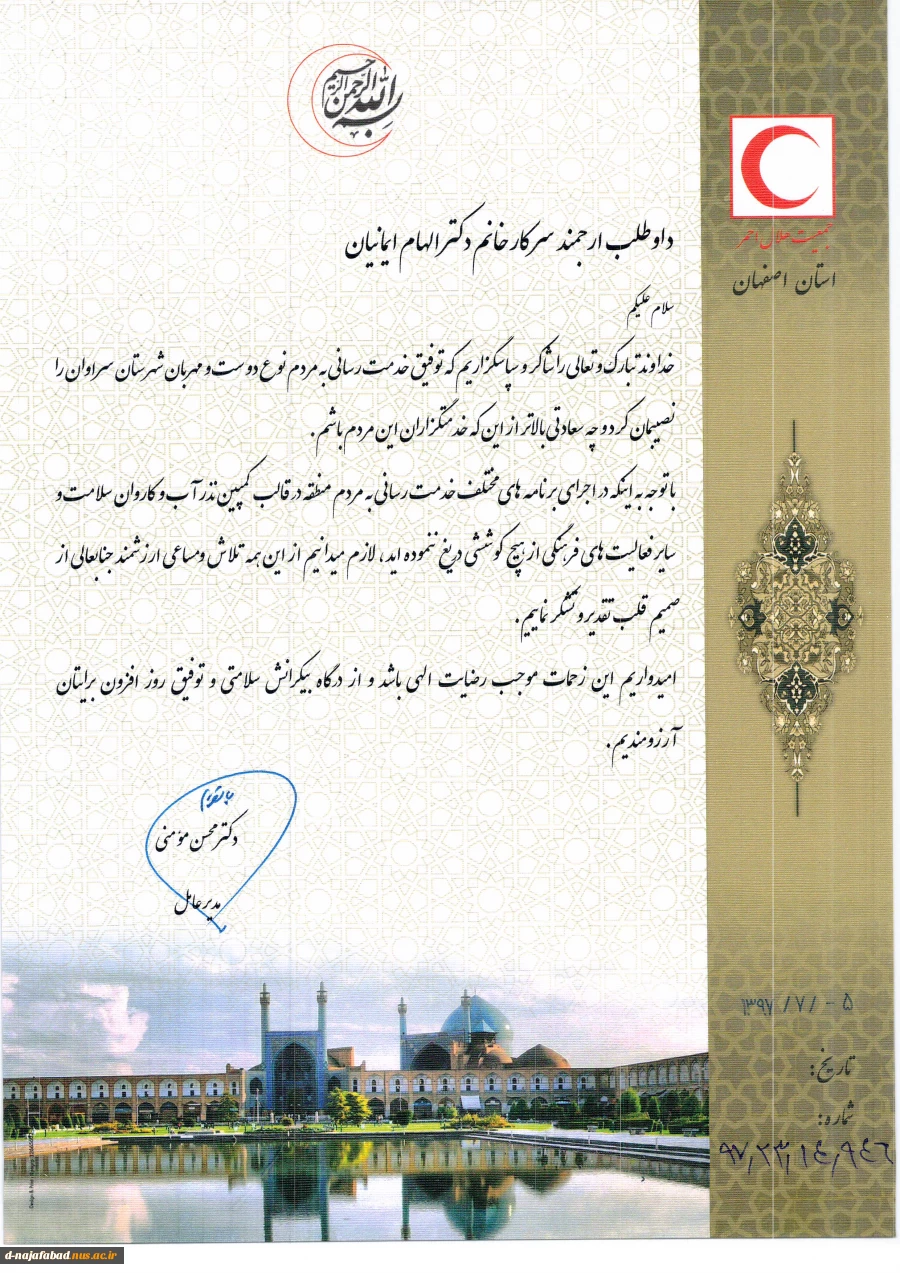 بسم الله الرحمن الرحیم
جمعیت هلال احمر
استان اصفهان
داوطلب ارجمند سرکار خانم دکتر الهام ایمانیان
سلام علیکم
خداوند تبارک و تعالی را شاکر و سپاسگزاریم که توفیق خدمت رسانی به مردم نوع دوست و مهربان شهرستان سراوان را
نصیبمان کرد و چه سعادتی بالاتر از این که خدمتگزاران این مردم باشم.
باتوجه به اینکه در اجرای برنامه های مختلف خدمت رسانی به مردم منطقه در قالب کمپین نذر آب و کاروان سلامت و
سایر فعالیت های فرهنگی از هیچ کوششی دریغ ننموده اید، لازم میدانیم از این همه تلاش ومساعی ارزشمند جنابعالی از
صمیم قلب تقدیر و تشکر نماییم.
امیدواریم این زحمات موجب رضایت الهی باشد و از درگاه بیکرانش سلامتی و توفیق روز افزون برایتان
آرزومندیم.
دکتر محسن مؤمنی
مدیرعامل
۱۳۹۷/۷/-۵
تاریخ:
شماره:
۹۷,۲۳,۱٤,۹٤٦
d-najafabad.nus.ac.ir